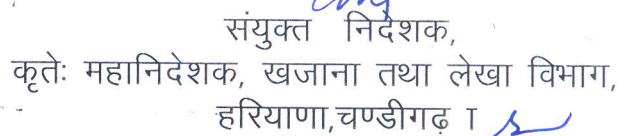 संयुक्त निदेशक,
कृतेः महानिदेशक, खजाना तथा लेखा विभाग,
हरियाणा,चण्डीगढ़ ।